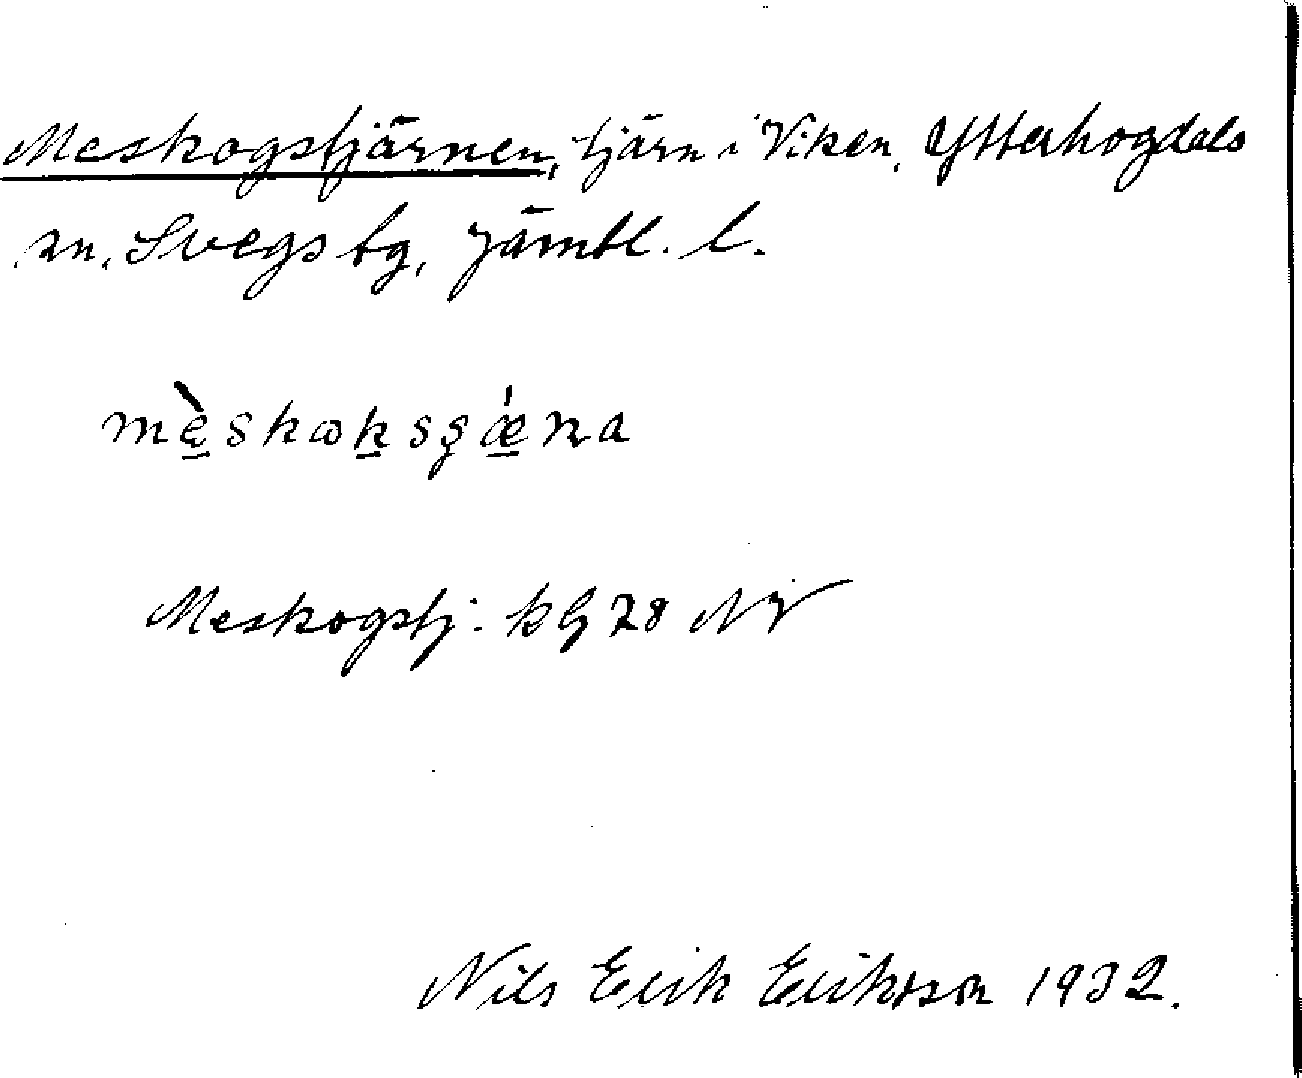 Meskogstjärnen, tjärn i Viken, Ytterhogdals
sn, Svegs tg, Jämtl. l.
mèskωksʂǽna
Meskogstj: kG 78 NV
Nils Erik Eriksson 1932.